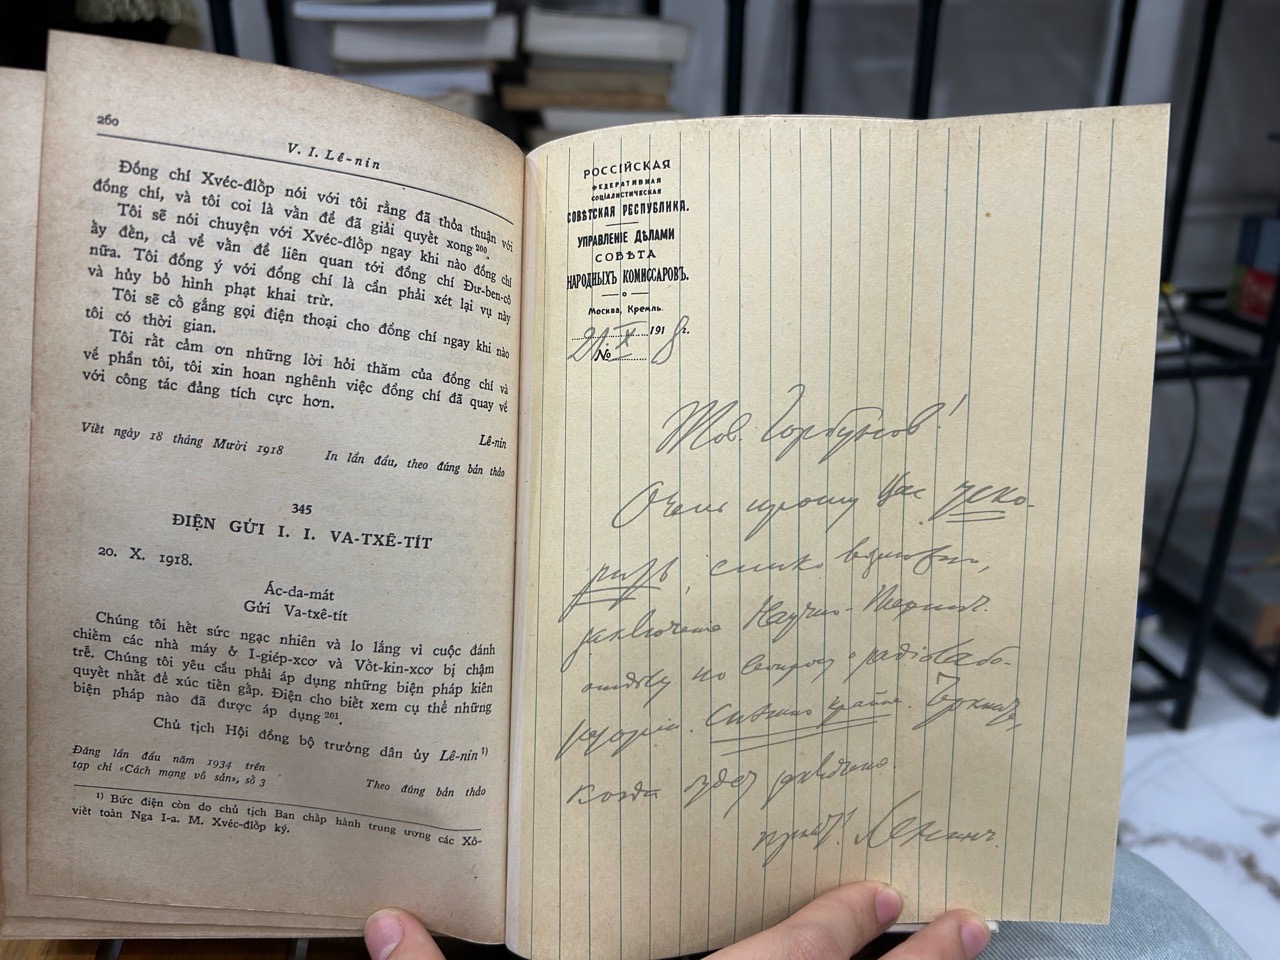 260
V. I. Lê-nin
Đồng chí Xvéc-đlốp nói với tôi rằng đã thỏa thuận với
đồng chí, và tôi coi là vấn đề đã giải quyết xong 200.
Tôi sẽ nói chuyện với Xvéc-đlốp ngay khi nào đồng chí
ấy đến, cả về vấn đề liên quan tới đồng chí Đư-ben-cô
nữa. Tôi đồng ý với đồng chí là cần phải xét lại vụ này
và hủy bỏ hình phạt khai trừ.
Tôi sẽ cố gắng gọi điện thoại cho đồng chí ngay khi nào
tôi có thời gian.
Tôi rất cảm ơn những lời hỏi thăm của đồng chí và
về phần tôi, tôi xin hoan nghênh việc đồng chí đã quay về
với công tác đảng tích cực hơn.
Lê-nin
Viết ngày 18 tháng Mười 1918
In lần đầu, theo đúng bản thảo
345
ĐIỆN GỬI I. I. VA-TXÊ-TÍT
20. X. 1918.
Ác-da-mát
Gửi Va-txê-tít
Chúng tôi hết sức ngạc nhiên và lo lắng vì cuộc đánh
chiếm các nhà máy ở I-giép-xcơ và Vốt-kin-xcơ bị chậm
trễ. Chúng tôi yêu cầu phải áp dụng những biện pháp kiên
quyết nhất để xúc tiến gấp. Điện cho biết xem cụ thể những
biện pháp nào đã được áp dụng 201.
Chủ tịch Hội đồng bộ trưởng dân ủy Lê-nin 1)
Đăng lần đầu năm 1934 trên
tạp chí «Cách mạng vô sản», số 3
Theo đúng bản thảo
1) Bức điện còn do chủ tịch Ban chấp hành trung ương các Xô-
viết toàn Nga I-a. M. Xvéc-đlốp ký.
РОССІЙСКАЯ
ФЕДЕРАТИВНАЯ
СОЦІАЛИСТИЧЕСКАЯ
СОВѢТСКАЯ РЕСПУБЛИКА.
УПРАВЛЕНІЕ ДѢЛАМИ
СОВѢТА
НАРОДНЫХЪ КОМИССАРОВЪ.
Москва, Кремль.
21 X 1918 г.
№
Тов. Горбунов!
Очень прошу Вас уско-
рить, елико возможно,
заключение Научно-Технич.
отдела по вопросу о радіолабо-
раторіи. Спешно крайне. Черкните,
когда будет заключение.
Привет! Ленин